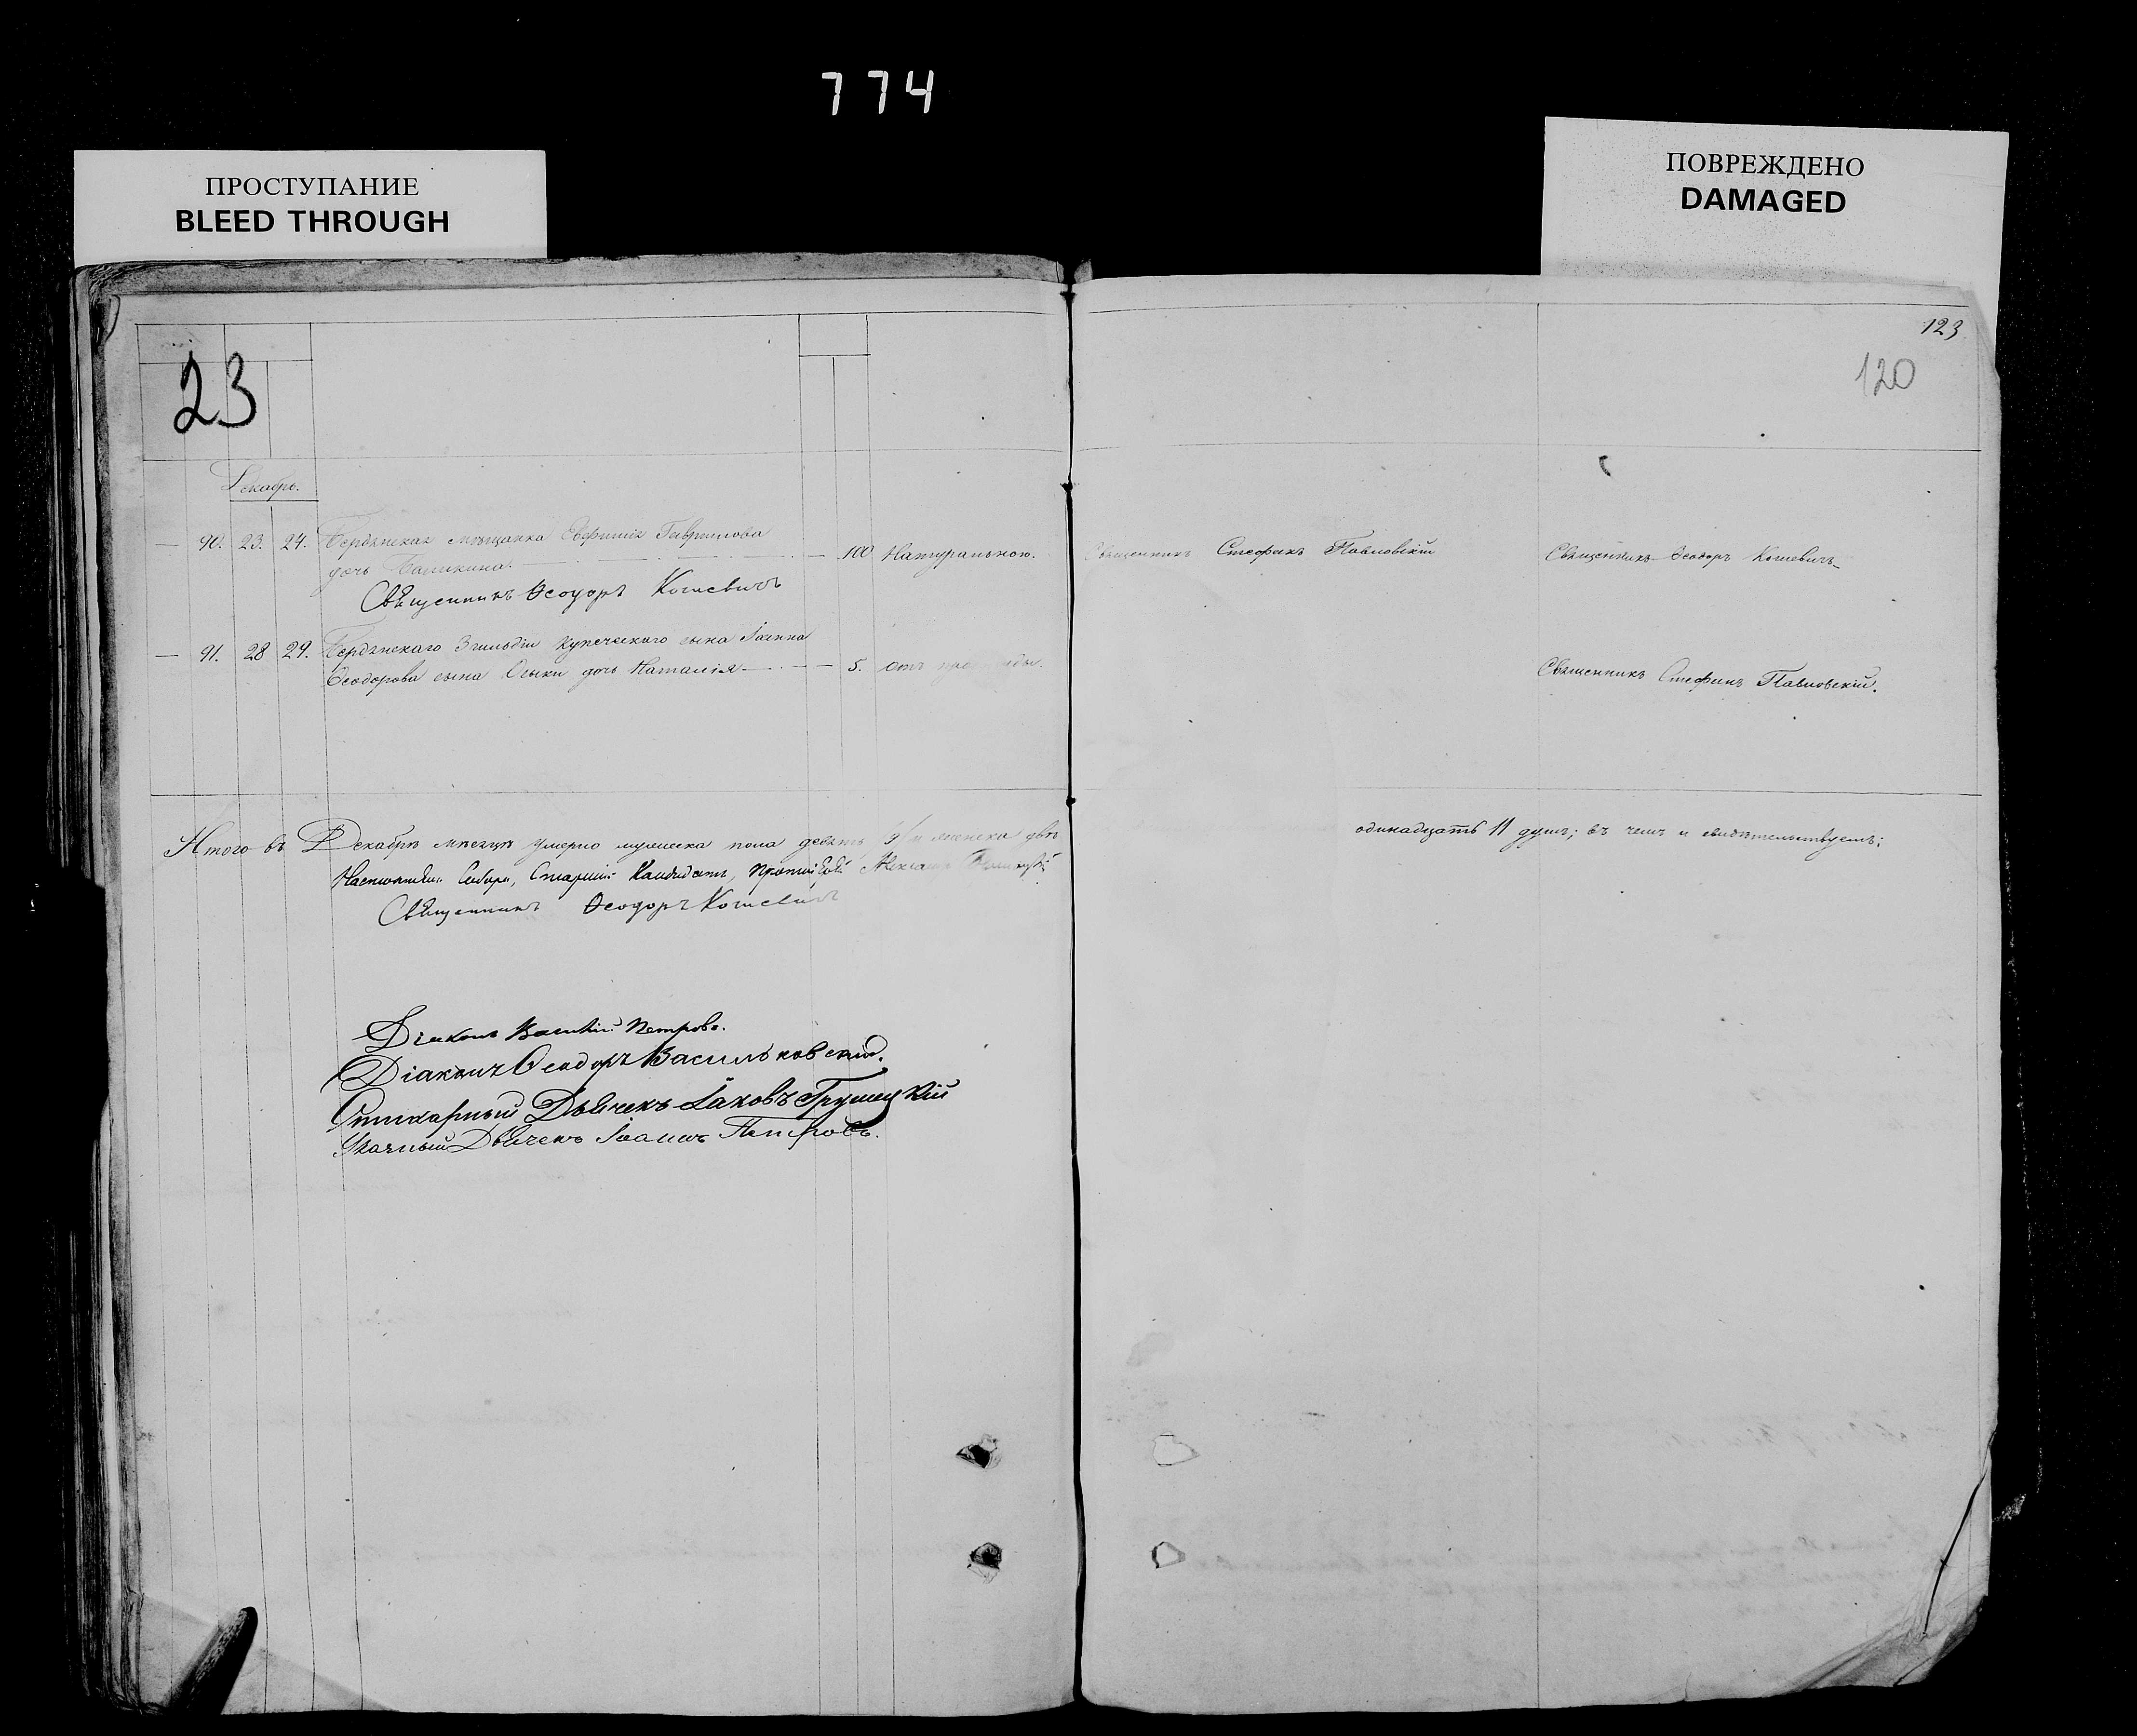 774
ПРОСТУПАНИЕ
BLEED THROUGH
ПОВРЕЖДЕНО
DAMAGED
123
120
23
Декабрь.
— 90. 23. 24. Бердянская мѣщанка Евфимія Гаврилова
дочь — 100 Натуральною. Священникъ Стефанъ Павловскій Священникъ Ѳеодоръ Кошевичъ
Священникъ Ѳеодоръ Кошевичъ
— 91. 28 29. Бердянскаго 3 гильдіи купеческаго сына Іоанна
Ѳеодорова сына дочь Наталія — 5. отъ Священникъ Стефанъ Павловскій.
Итого въ Декабрѣ мѣсяцѣ умерло мужеска пола девять 9 и женска двѣ одинадцать 11 душъ; въ чемъ и свидѣтельствуемъ:
Настоятель Собора, Старшій Кандидатъ, Протоіерей
Священникъ Ѳеодоръ Кошевичъ
Діаконъ Василій Петровъ.
Діаконъ Ѳеодоръ Васильковскій.
Дьячекъ Іаковъ Грушецкій
Указный Дьячекъ Іоаннъ Петровъ.